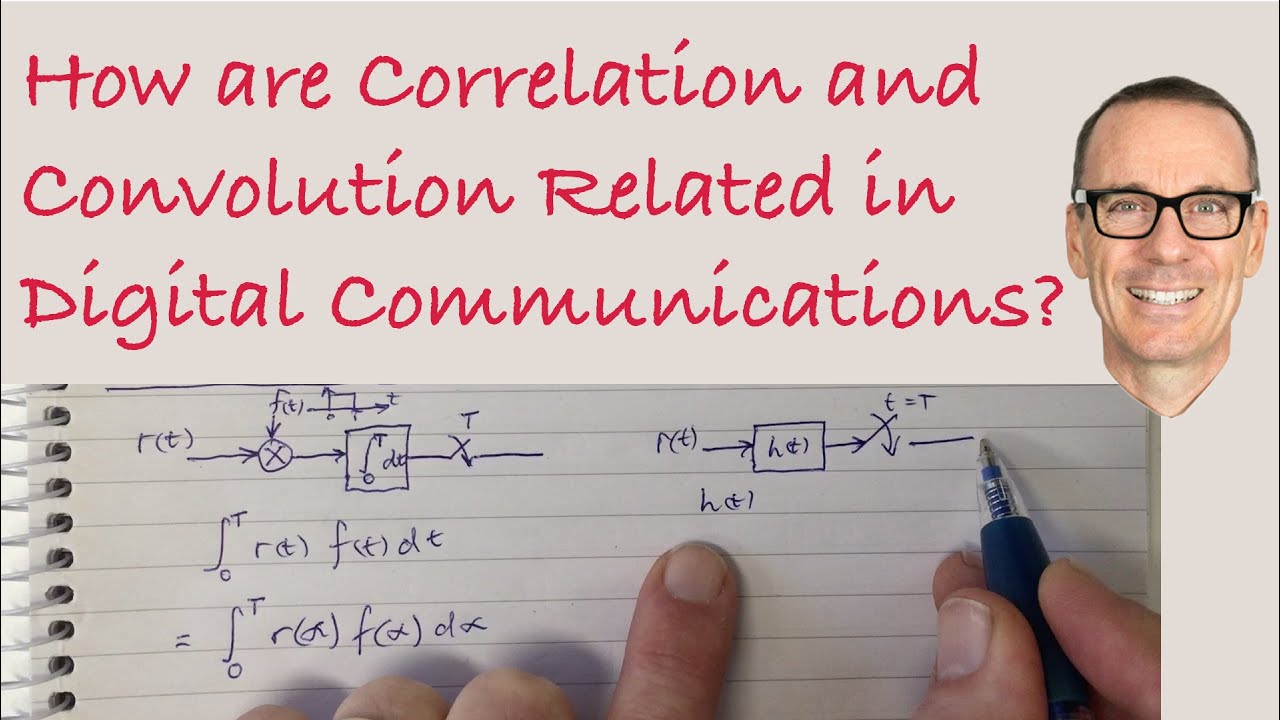 How are Correlation and
Convolution Related in
Digital Communications?
f(t) t
0
T t = T
r(t) X ∫₀ᵀ dt r(t) h(t)
h(t)
∫₀ᵀ r(t) f(t) dt
= ∫₀ᵀ r(α) f(α) dα